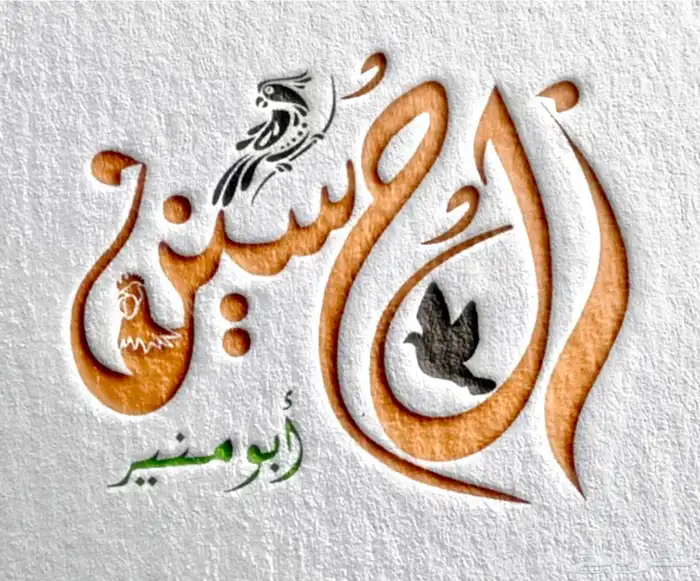 الحُسين
أبو منير